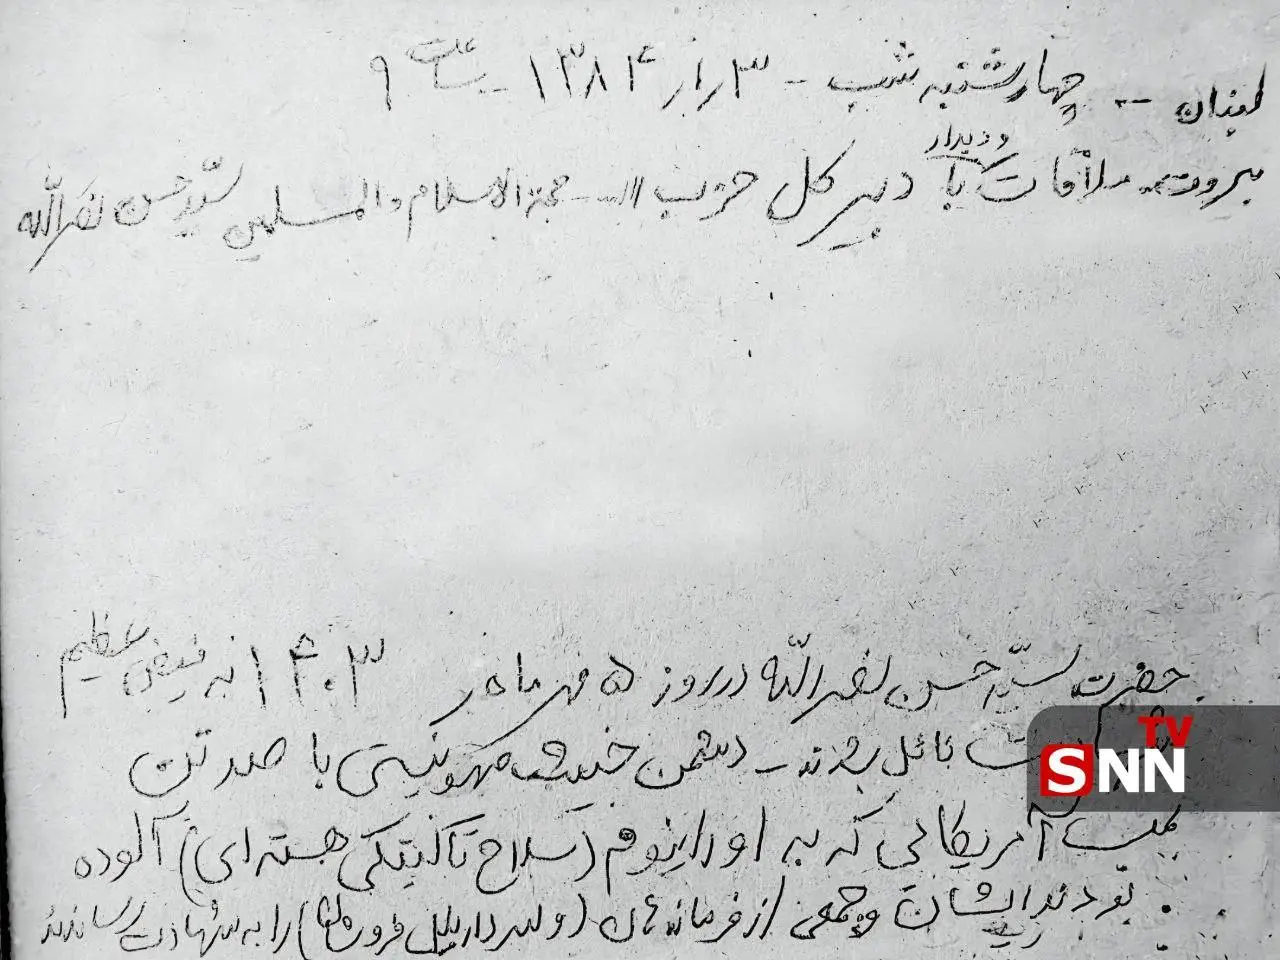 لبنان -- چهارشنبه شب - ۱۳۸۴/۱/۳ - ساعت ۹
بیروت ملاقات و دیدار با دبیر کل حزب الله - حجة الاسلام والمسلمین سیّد حسن نصرالله
حضرت سیّد حسن نصرالله در روز ۵ مهر ماه ۱۴۰۳ به فیض عظیم
نائل شدند - دشمن خبیث صهونیستی با صد تن
بمب آمریکائی که به اورانیوم (سلاح تاکتیکی هسته‌ای) آلوده
بودند ایشان و جمعی از فرماندهان (و سردار نیل فروشان) را به شهادت رساندند
SNN
TV